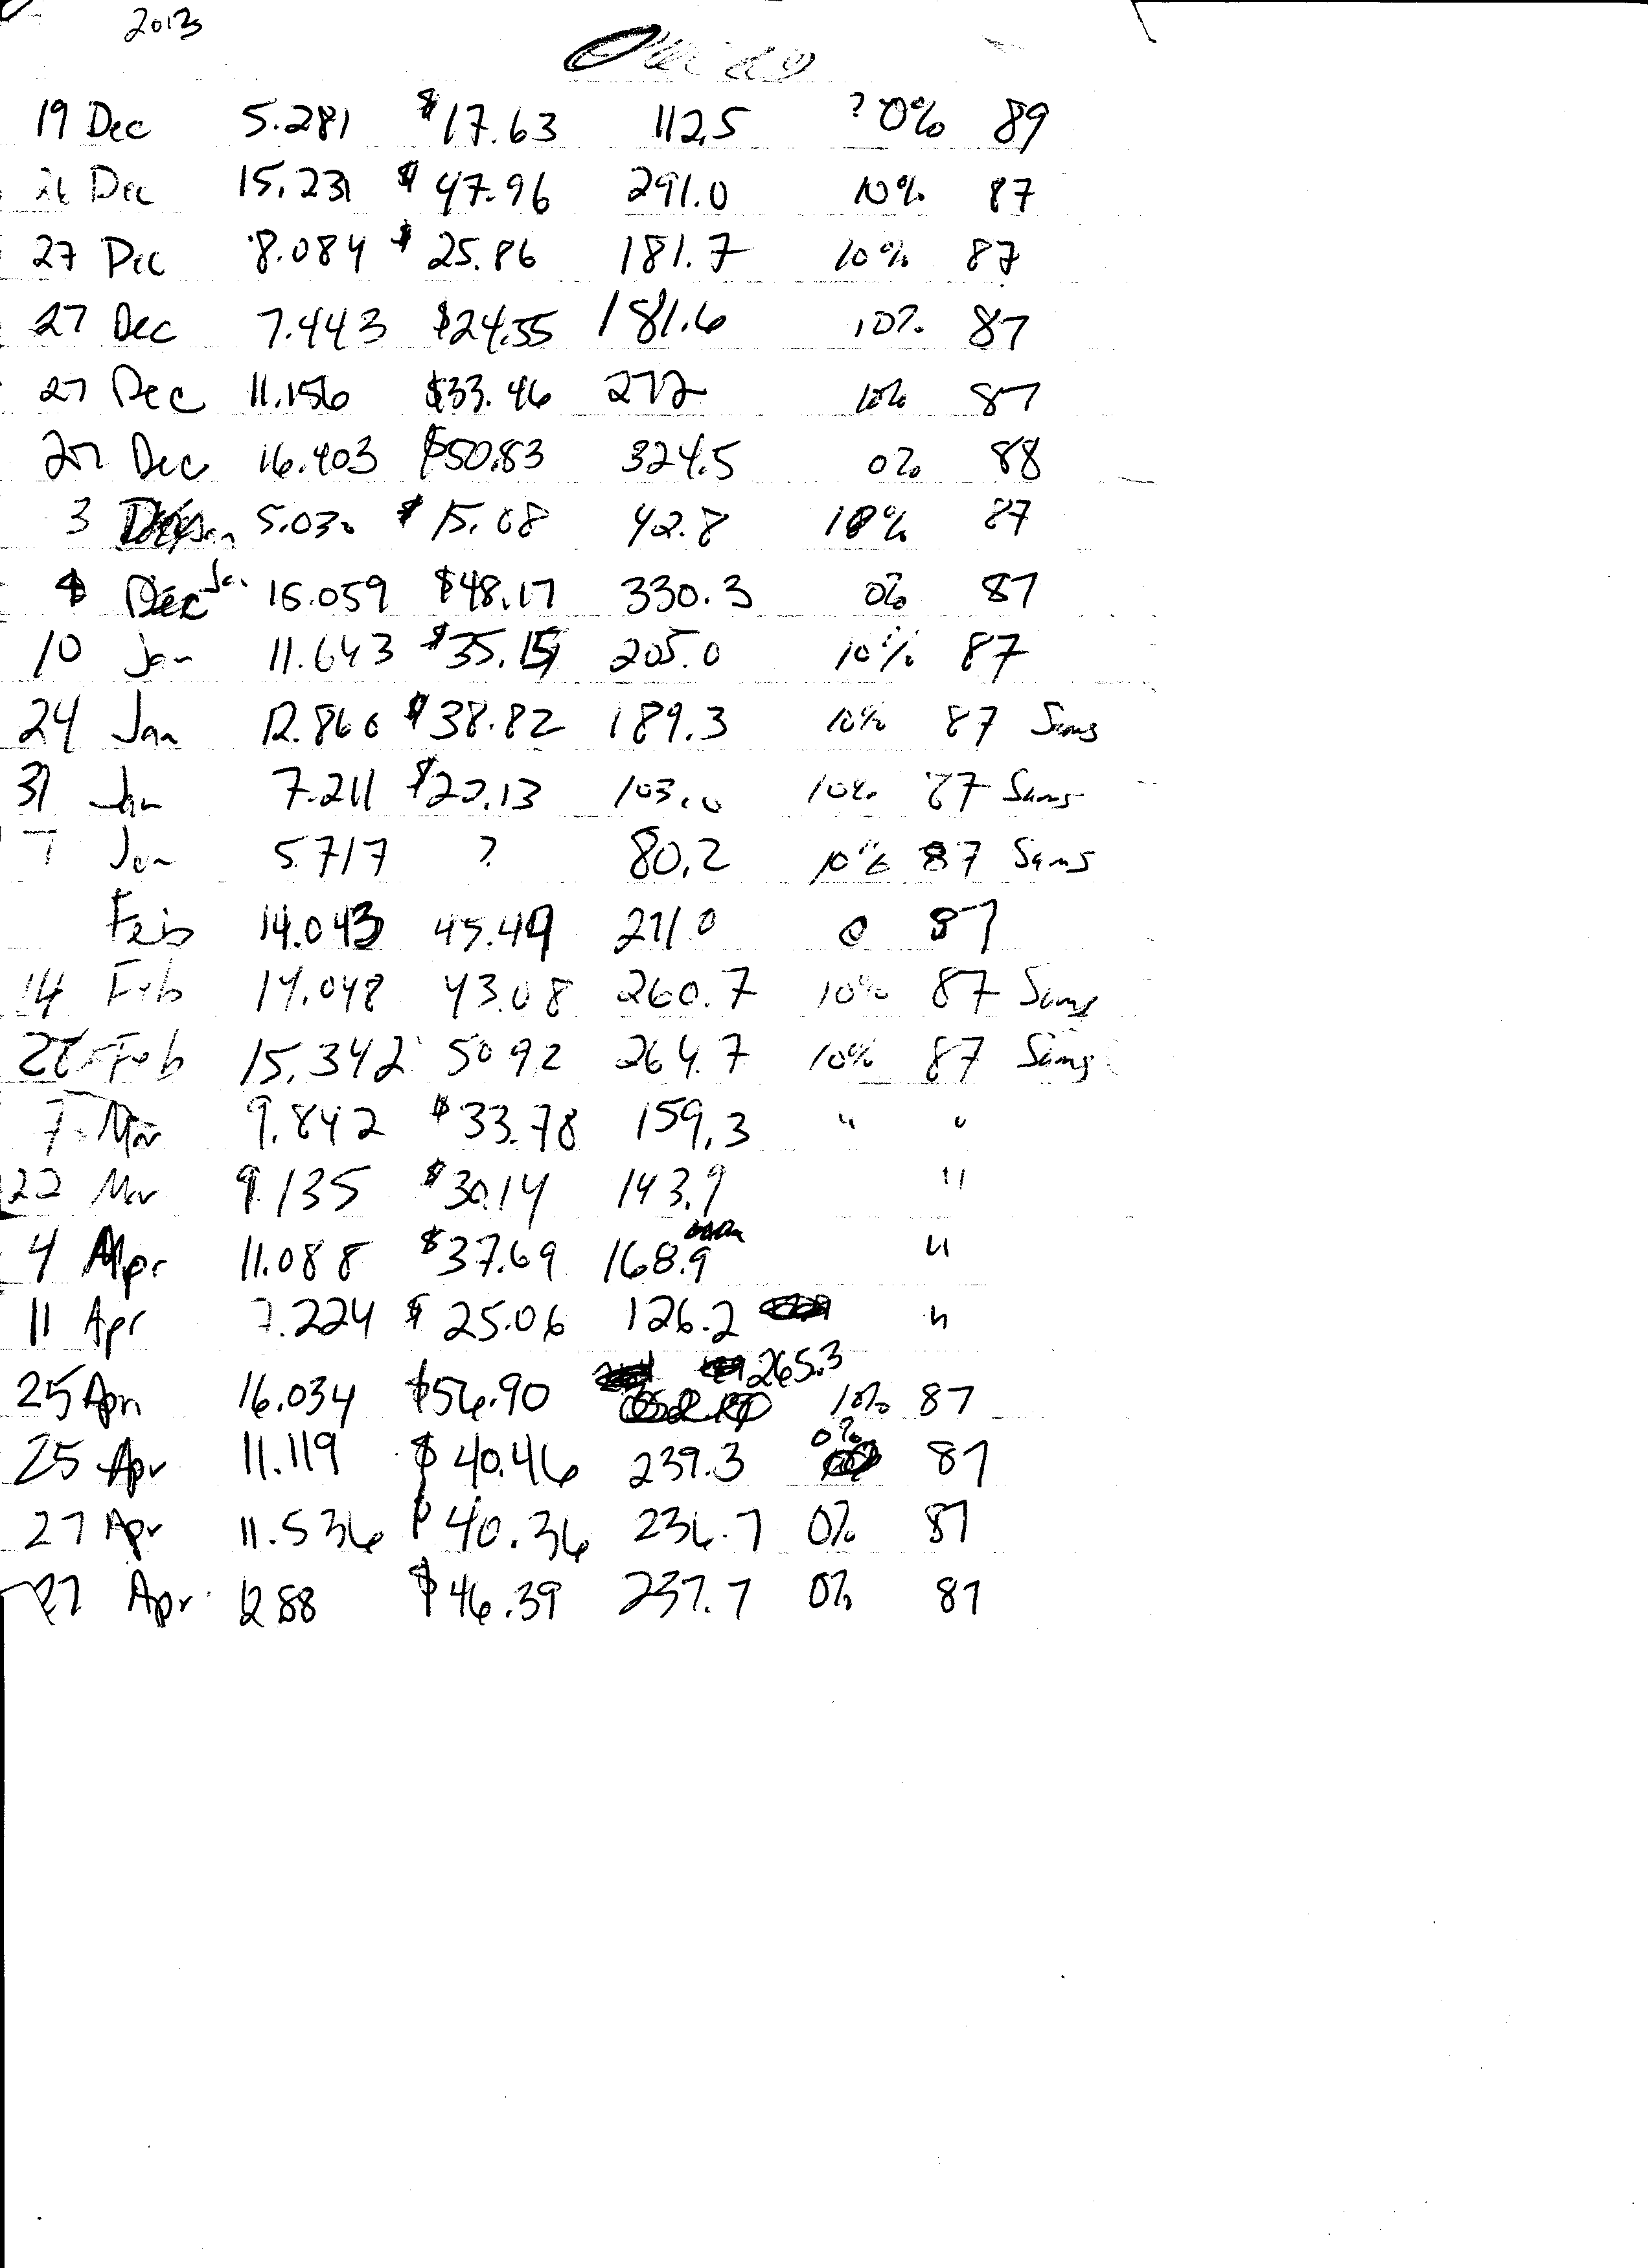 2013
19 Dec 5.281 $17.63 112.5 ? 0% 89
26 Dec 15.231 $47.96 291.0 10% 87
27 Dec 8.084 $25.86 181.7 10% 87
27 Dec 7.443 $24.55 181.6 10% 87
27 Dec 11.156 $33.46 272 10% 87
27 Dec 16.403 $50.83 324.5 0% 88
3 Jan 5.030 $15.08 42.8 10% 87
Jan 16.059 $48.17 330.3 0% 87
10 Jan 11.643 $35.15 205.0 10% 87
24 Jan 12.860 $38.82 189.3 10% 87 Sams
31 Jan 7.211 $22.13 103.0 10% 87 Sams
7 Jan 5.717 ? 80.2 10% 87 Sams
Feb 14.043 45.49 271.0 0 87
14 Feb 14.048 43.08 260.7 10% 87 Sams
Feb 15.342 50 92 264.7 10% 87 Sams
7 Mar 9.842 $33.78 159.3 " "
22 Mar 9.135 $30.14 143.9 "
4 Apr 11.088 $37.69 168.9 "
11 Apr 7.224 $25.06 126.2 "
25 Apr 16.034 $56.90 265.3 10% 87
25 Apr 11.119 $40.46 239.3 0% 87
27 Apr 11.536 $40.36 236.7 0% 87
27 Apr 12.88 $46.39 237.7 0% 87